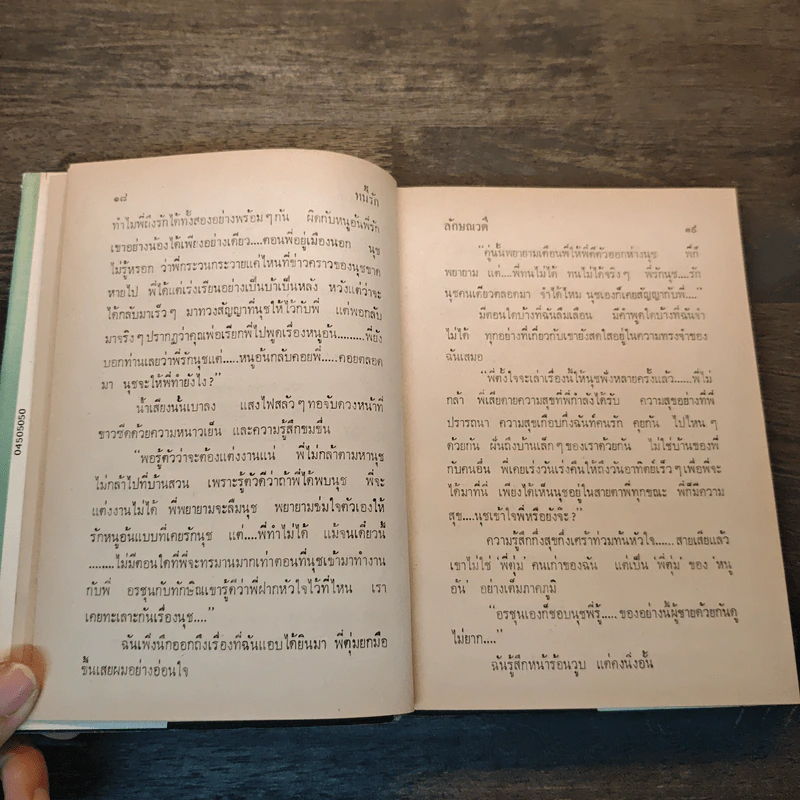 ๑๘ หนี้รัก
ทำไมพี่ถึงรักได้ทั้งสองอย่างพร้อมๆกัน ผิดกับหนูอันพี่รัก
เขาอย่างน้องได้เพียงอย่างเดียว....ตอนพี่อยู่เมืองนอก นุช
ไม่รู้หรอก ว่าพี่กระวนกระวายแค่ไหนที่ข่าวคราวของนุชขาด
หายไป พี่ได้แต่เร่งเรียนอย่างเป็นบ้าเป็นหลัง หวังแต่ว่าจะ
ได้กลับมาเร็วๆ มาทวงสัญญาที่นุชให้ไว้กับพี่ แต่พอกลับ
มาจริงๆปรากฏว่าคุณพ่อเรียกพี่ไปพูดเรื่องหนูอัน.....พี่ยัง
บอกท่านเลยว่าพี่รักนุชแต่.....หนูอันกลับคอยพี่....คอยตลอด
มา นุชจะให้พี่ทำยังไง?”
น้ำเสียงนั้นเบาลง แสงไฟสลัวๆทอจับดวงหน้าที่
ขาวซีดด้วยความหนาวเย็น และความรู้สึกขมขื่น
“พอรู้ตัวว่าจะต้องแต่งงานแน่ พี่ไม่กล้าตามหานุช
ไม่กล้าไปที่บ้านสวน เพราะรู้ตัวดีว่าถ้าพี่ได้พบนุช พี่จะ
แต่งงานไม่ได้ พี่พยายามจะลืมนุช พยายามข่มใจตัวเองให้
รักหนูอันแบบที่เคยรักนุช แต่....พี่ทำไม่ได้ แม้จนเดี๋ยวนี้
........ไม่มีตอนใดที่พี่จะทรมานมากเท่าตอนที่นุชเข้ามาทำงาน
กับพี่ อรชุนกับทักษิณเขารู้ดีว่าพี่ฝากหัวใจไว้ที่ไหน เรา
เคยทะเลาะกันเรื่องนุช....”
ฉันเพิ่งนึกออกถึงเรื่องที่ฉันแอบได้ยินมา พี่ตุ่มยกมือ
ขึ้นเสยผมอย่างอ่อนใจ
ลักษณวดี ๑๙
“คู่นั้นพยายามเตือนพี่ให้พี่ตีตัวออกห่างนุช พี่ก็
พยายาม แต่....พี่ทนไม่ได้ ทนไม่ได้จริงๆ พี่รักนุช....รัก
นุชคนเดียวตลอดมา จำได้ไหม นุชเองก็เคยสัญญากับพี่....”
มีตอนใดบ้างที่ฉันลืมเลือน มีคำพูดใดบ้างที่ฉันจำ
ไม่ได้ ทุกอย่างที่เกี่ยวกับเขายังสดใสอยู่ในความทรงจำของ
ฉันเสมอ
“พี่ตั้งใจจะเล่าเรื่องนี้ให้นุชฟังหลายครั้งแล้ว......พี่ไม่
กล้า พี่เสียดายความสุขที่พี่กำลังได้รับ ความสุขอย่างที่พี่
ปรารถนา ความสุขเกือบกึ่งฉันท์คนรัก คุยกัน ไปไหนๆ
ด้วยกัน ฝันถึงบ้านเล็กๆของเราด้วยกัน ไม่ใช่บ้านของพี่
กับคนอื่น พี่เคยเร่งวันเร่งคืนให้ถึงวันอาทิตย์เร็วๆเพื่อพี่จะ
ได้มาที่นี่ เพียงได้เห็นนุชอยู่ในสายตาพี่ทุกขณะ พี่ก็มีความ
สุข....นุชเข้าใจพี่หรือยังจ๊ะ?”
ความรู้สึกกึ่งสุขกึ่งเศร้าท่วมท้นหัวใจ.....สายเสียแล้ว
เขาไม่ใช่ ‘พี่ตุ่ม’ คนเก่าของฉัน แต่เป็น ‘พี่ตุ่ม’ ของ ‘หนู
อัน’ อย่างเต็มภาคภูมิ
“อรชุนเองก็ชอบนุชพี่รู้.....ของอย่างนี้ผู้ชายด้วยกันดู
ไม่ยาก....”
ฉันรู้สึกหน้าร้อนวูบ แต่คงนิ่งอั้น
04505050